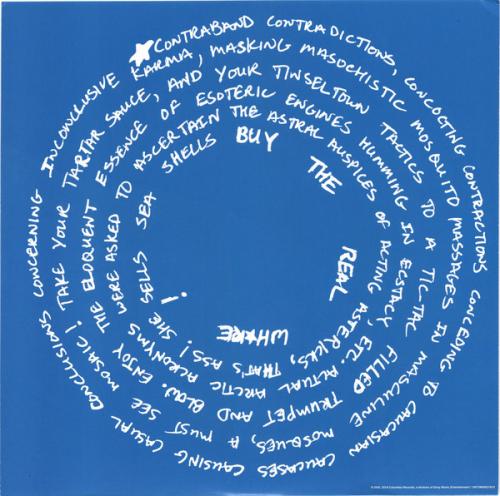 CONTRABAND CONTRADICTIONS, CONCOCTING CONTRACTIONS CONCEDING TO CAUCASIAN CAUCASES CAUSING CASUAL CONCLUSIONS CONCERNING INCONCLUSIVE
KARMA, MASKING MASOCHISTIC MOSQUITO MASSAGES IN MASCULINE MOSQUES, A MUST SEE MOSAIC! TAKE YOUR TARTAR
SAUCE, AND YOUR TINSELTOWN TACTICS TO A TIC-TAC FILLED TRUMPET AND BLOW. ENJOY THE ELOQUENT ESSENCE
OF ESOTERIC ENGINES HUMMING IN ECSTACY, ETC. ACTUAL ARCTIC ACRONYMS WERE ASKED TO ASCERTAIN
THE ASTRAL AUSPICES OF ACTING ASTERICKS, THAT'S ASS! SHE SELLS SEA SHELLS
BUY THE REAL WHARE !